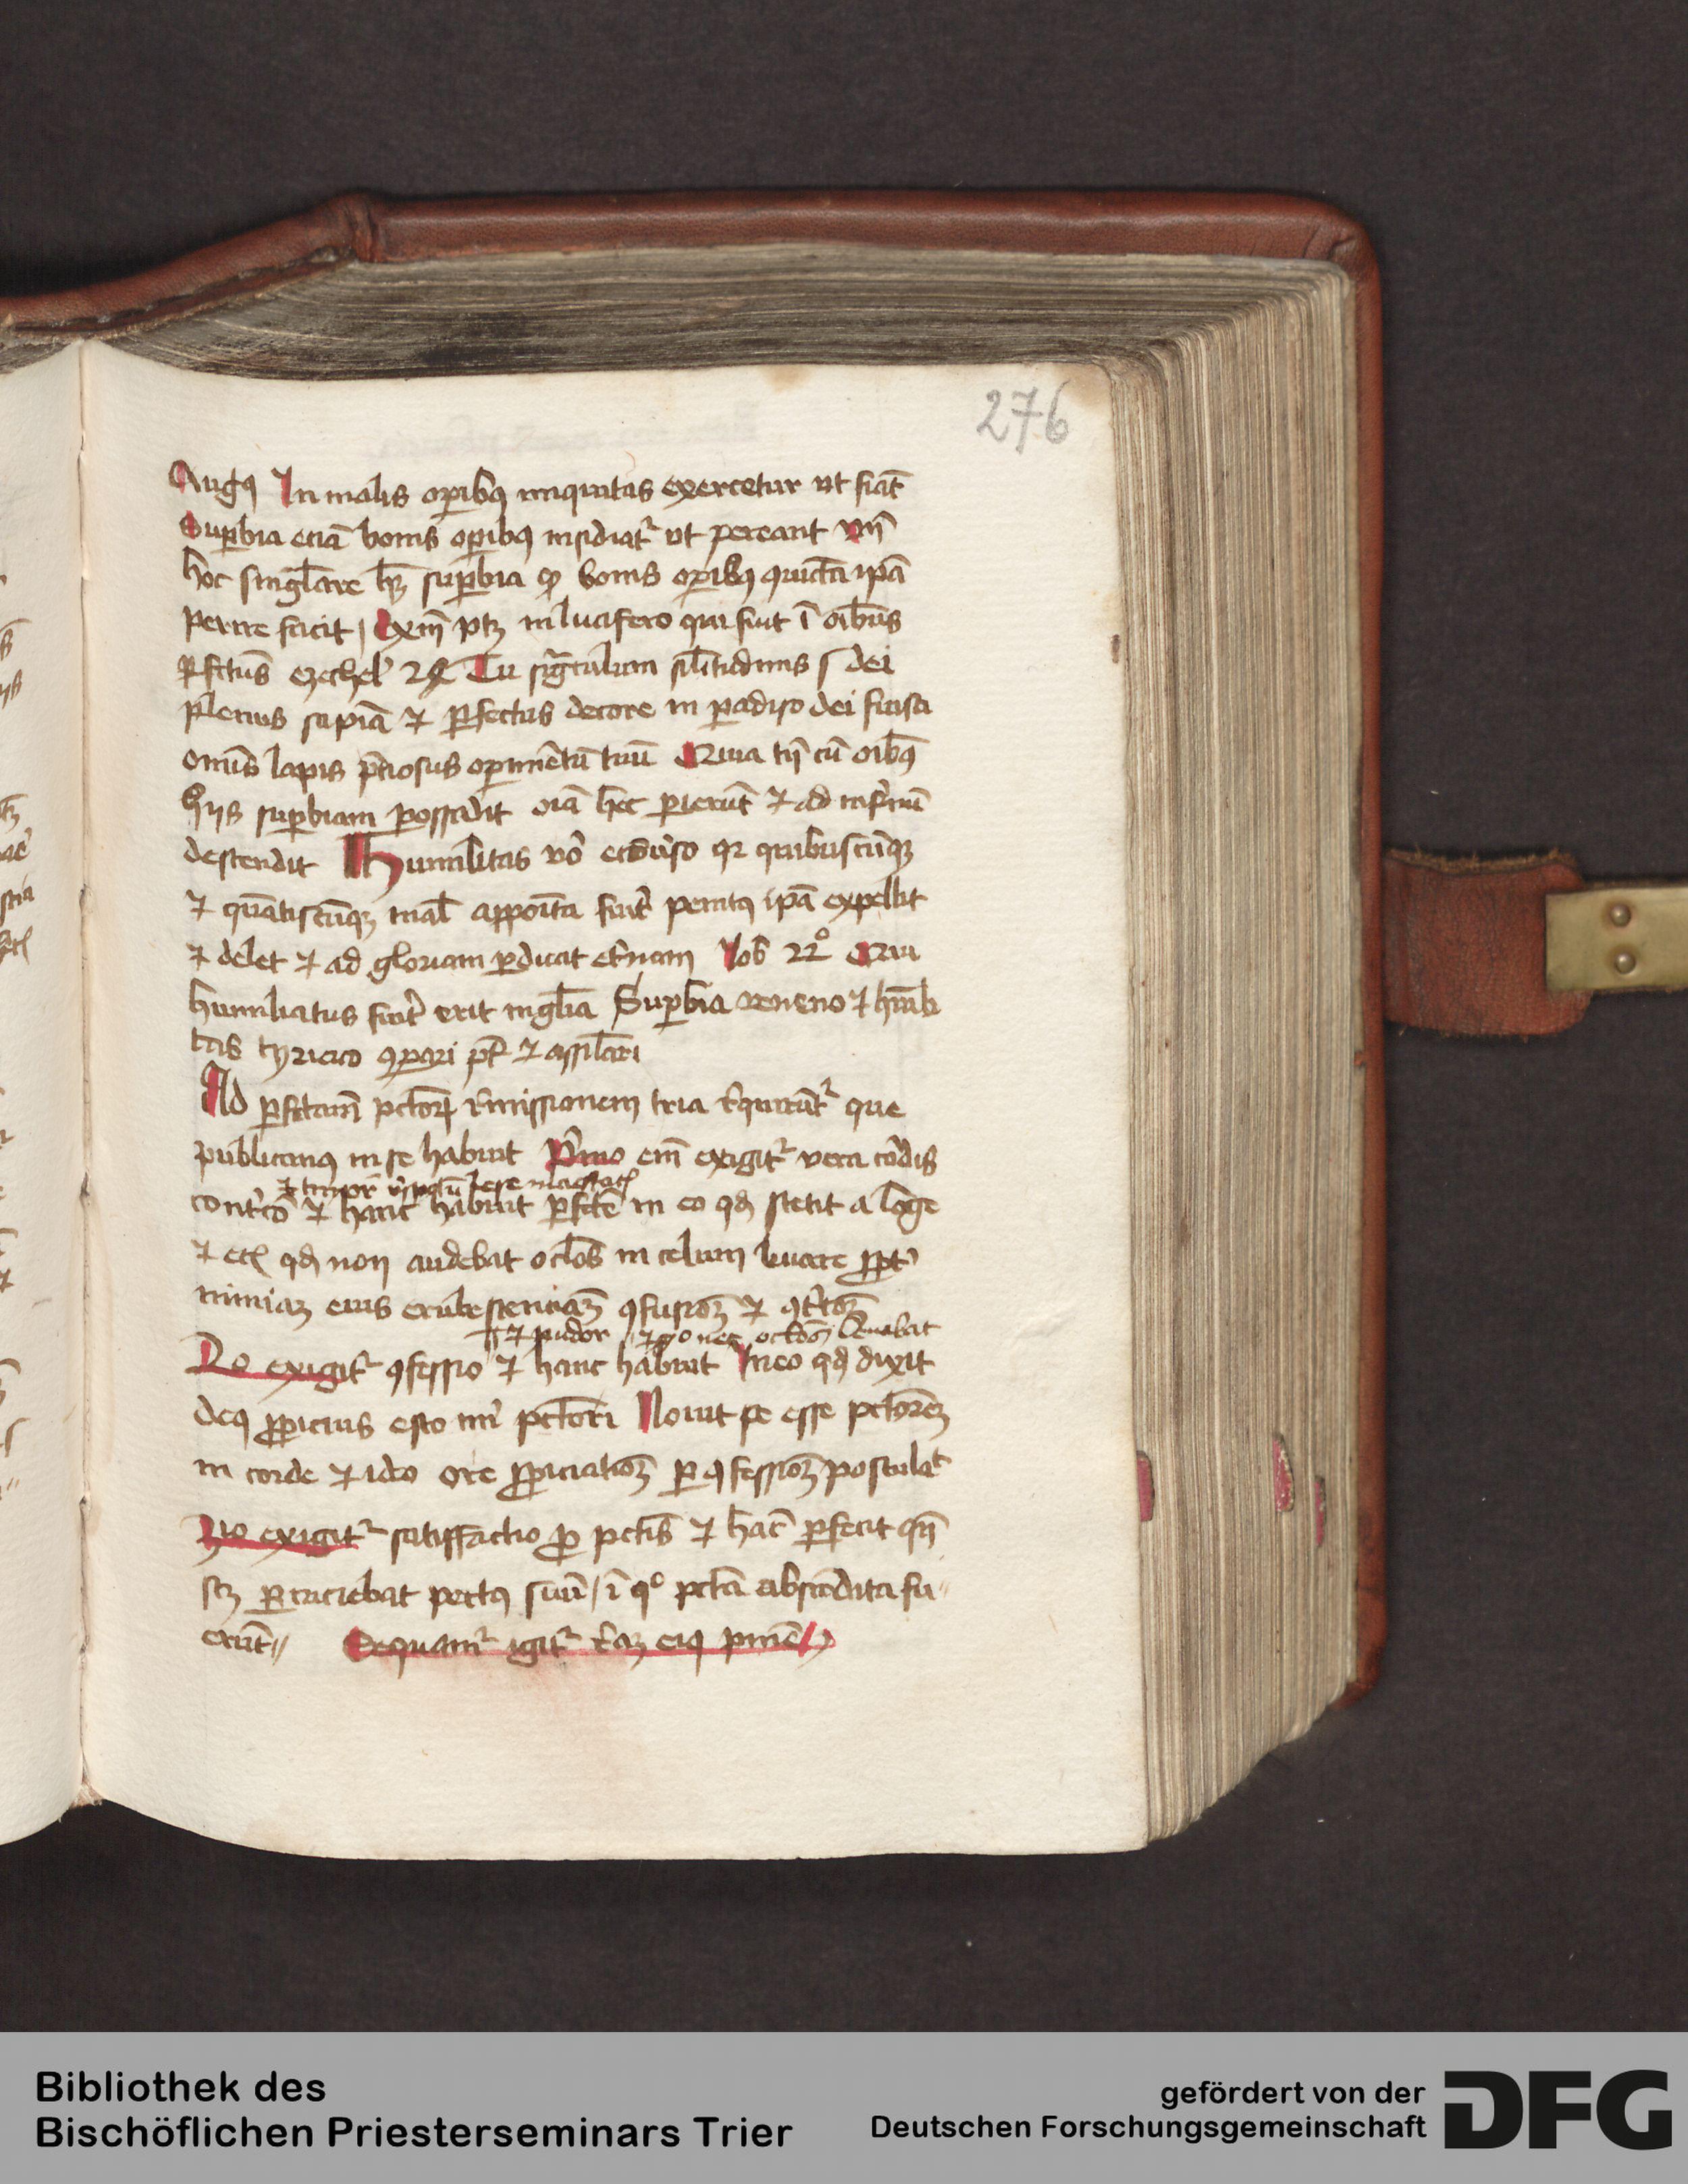 276
Augꝯ In malis oꝑibꝯ iniquitas exercetur ut fiāt
Suꝑbia eciā bonis oꝑibꝯ insidiat᷑ ut pereant vn̄
hoc singl̄are hꝫ suꝑbia ꝙ bonis oꝑibꝯ ipā
perire facit / Exm̄ ptꝫ in lucifero qui fuit ī oībus
ꝑfctus ezechel 28 Tu sigͣculum silitudinis dei
plenus sapīa ⁊ ꝑfectus decore in padiso dei fuisti
omīs lapis p̄ciosus oꝑimētū tuū Quia tn̄ cū oībꝯ
hijs suꝑbiam possedit oīa hec ꝑierūt ⁊ ad infernū
descendit Humilitas vo ecōuerso qꝛ quibuscūqꝫ
⁊ quātiscūqꝫ mal apponita fuit penitꝯ ipā expellit
⁊ delet ⁊ ad gloriam ꝑducit et̄nam Iob 22o Qui
humiliatus fuit erit in gl̄ia Suꝑbia veneno ⁊ humili
tas tyriaco ꝯꝑari pt ⁊ assil̄ari
Ad ꝑfctam pctoꝝ remissionem tria requirūt᷑ que
publicanꝯ in se habuit Primo em̄ exigit᷑ vera cordis
⁊ timor lese maiestatꝭ
contricō ⁊ hanc habuit ꝑfcte in eo qd stetit a lōge
⁊ ecī qd non audebat oclos in celum leuare ꝓpt
nimiaꝫ eius erubescenciaꝫ ꝯfusioꝫ ⁊ ꝯtritoꝫ
⁊ pudor ⁊ ꝙo nec oclos leuabat
2o exigit᷑ ꝯfessio ⁊ hanc habuit In eo qd dixit
deꝯ ꝓpicius esto mi pctori Nouit se esse pctoreꝫ
in corde ⁊ ideo ore ꝓpiciatioꝫ ꝑ ꝯfessioꝫ postulat
3o exigit᷑ satisfactio ꝓ pctis ⁊ hāc ꝑfecit qn̄
scꝫ ꝑcuciebat pectꝯ suū / ī qo pctā abscōdita fu〃
erūt〃 Sequam᷑ igit᷑ eiꝯ
Bibliothek des
Bischöflichen Priesterseminars Trier
gefördert von der
Deutschen Forschungsgemeinschaft
DFG